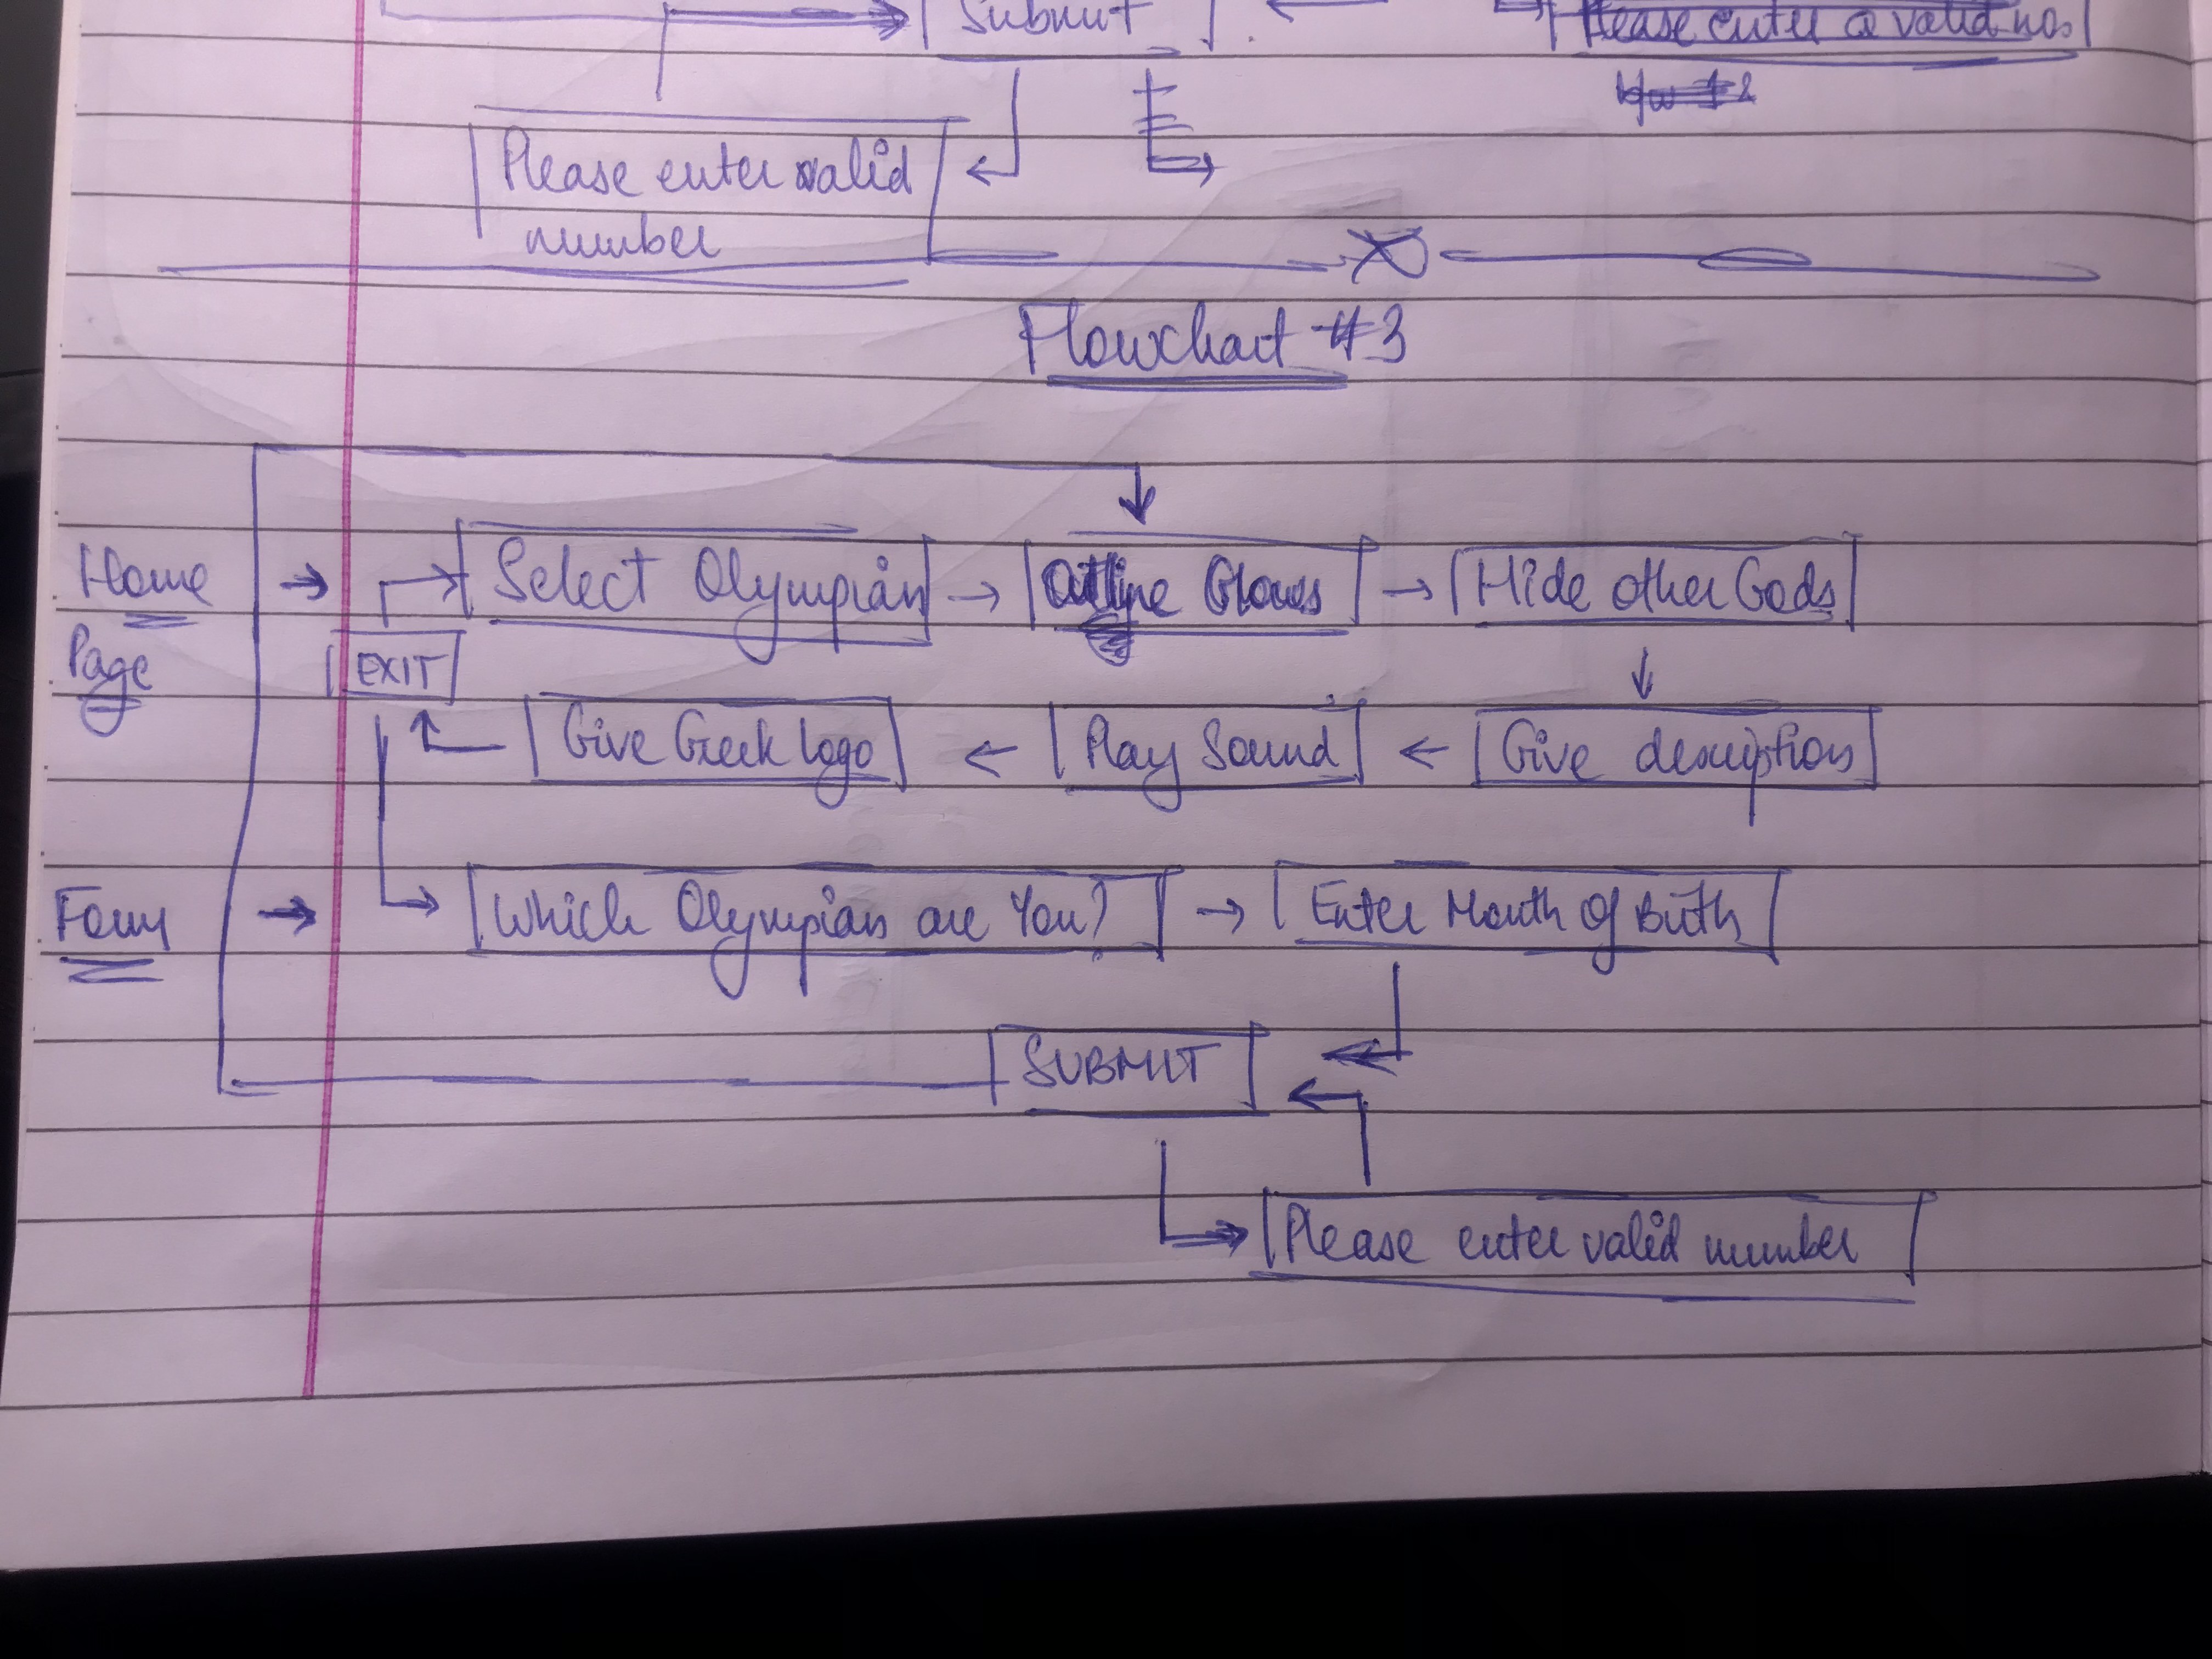 Submit
Please enter a valid nos
Please enter valid
number
Flowchart #3
Home → Select Olympian → Outline Glows → Hide other Gods
Page
EXIT
Give Greek logo ← Play Sound ← Give description
Form → Which Olympian are You? → Enter Month Of Birth
SUBMIT
Please enter valid number